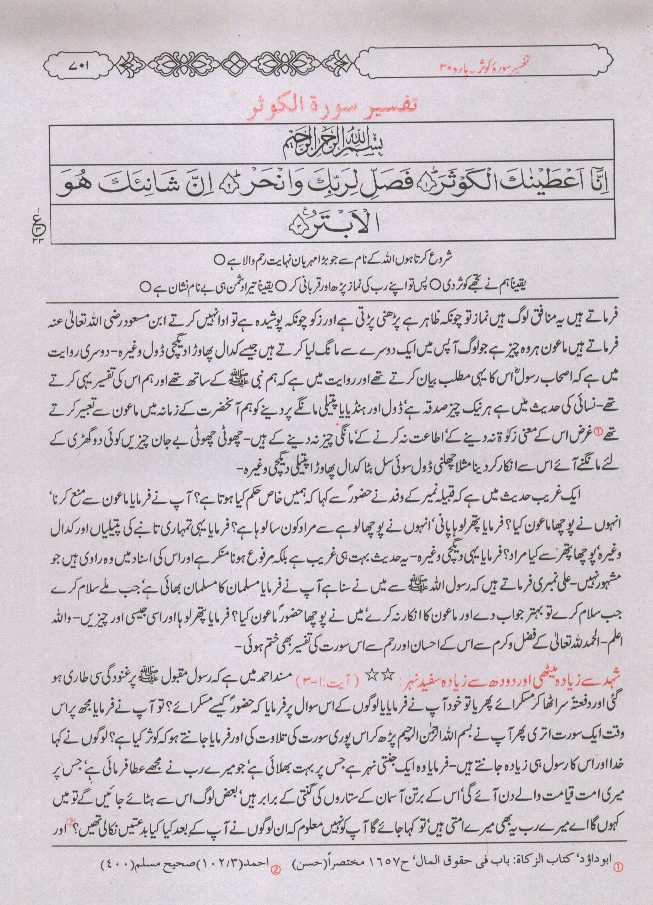 تفسیر سورۂ کوثر۔ پارہ ۳۰
۷۰۱
تفسیر سورۃ الکوثر
بسم اللہ الرحمن الرحیم
اِنَّاۤ اَعْطَیْنٰكَ الْكَوْثَرَ ؕ۱ فَصَلِّ لِرَبِّكَ وَانْحَرْ ؕ۲ اِنَّ شَانِئَكَ هُوَ
الْاَبْتَرُ ۳
شروع کرتا ہوں اللہ کے نام سے جو بڑا مہربان نہایت رحم والا ہے ○
یقیناً ہم نے تجھے کوثر دی ○ پس تو اپنے رب کی نماز پڑھ اور قربانی کر ○ یقیناً تیرا دشمن ہی بے نام نشان ہے ○
فرماتے ہیں یہ منافق لوگ ہیں نماز تو چونکہ ظاہر ہے پڑھنی پڑتی ہے اور زکوٰۃ چونکہ پوشیدہ ہے تو ادا نہیں کرتے ابن مسعود رضی اللہ تعالیٰ عنہ
فرماتے ہیں ماعون ہر وہ چیز ہے جو لوگ آپس میں ایک دوسرے سے مانگ لیا کرتے ہیں جیسے کدال پھاوڑا دیگچی ڈول وغیرہ- دوسری روایت
میں ہے کہ اصحاب رسول اس کا یہی مطلب بیان کرتے تھے اور روایت میں ہے کہ ہم نبی ﷺ کے ساتھ تھے اور ہم اس کی تفسیر یہی کرتے
تھے- نسائی کی حدیث میں ہے ہر نیک چیز صدقہ ہے‘ ڈول اور ہنڈیا یا پتیلی مانگے پر دینے کو ہم آنحضرت کے زمانہ میں ماعون سے تعبیر کرتے
تھے ① غرض اس کے معنی زکوٰۃ نہ دینے کے‘ اطاعت نہ کرنے کے‘ مانگی چیز نہ دینے کے ہیں- چھوٹی چھوٹی بے جان چیزیں کوئی دو گھڑی کے
لئے مانگنے آئے اس سے انکار کر دینا مثلاً چھلنی ڈول سوئی سل بٹا کدال پھاوڑا پتیلی دیگچی وغیرہ-
ایک غریب حدیث میں ہے کہ قبیلہ نمیر کے وفد نے حضور سے کہا کہ ہمیں خاص حکم کیا ہوتا ہے؟ آپ نے فرمایا ماعون سے منع کرنا‘
انہوں نے پوچھا ماعون کیا؟ فرمایا پتھر لوہا پانی‘ انہوں نے پوچھا لوہے سے مراد کون سا لوہا ہے؟ فرمایا یہی تمہاری تانبے کی پتیلیاں اور کدال
وغیرہ پوچھا پتھر سے کیا مراد؟ فرمایا یہی دیگچی وغیرہ- یہ حدیث بہت ہی غریب ہے بلکہ مرفوع ہونا منکر ہے اور اس کی اسناد میں وہ راوی ہیں جو
مشہور نہیں- علی نمیری فرماتے ہیں کہ رسول اللہ ﷺ سے میں نے سنا ہے آپ نے فرمایا مسلمان کا مسلمان بھائی ہے‘ جب ملے سلام کرے
جب سلام کرے تو بہتر جواب دے اور ماعون کا انکار نہ کرے‘ میں نے پوچھا حضور ماعون کیا؟ فرمایا پتھر لوہا اور اسی جیسی اور چیزیں- واللہ
اعلم- الحمد للہ اللہ تعالیٰ کے فضل و کرم سے اس کے احسان اور رحم سے اس سورت کی تفسیر بھی ختم ہوئی-
شہد سے زیادہ میٹھی اور دودھ سے زیادہ سفید نہر: ☆☆ (آیت:۱-۳) مسند احمد میں ہے کہ رسول مقبول ﷺ پر غنودگی سی طاری ہو
گئی اور دفعتہً سر اٹھا کر مسکرائے پھر یا تو خود آپ نے فرمایا یا لوگوں کے اس سوال پر فرمایا کہ حضور کیسے مسکرائے؟ تو آپ نے فرمایا مجھ پر اس
وقت ایک سورت اتری پھر آپ نے بسم اللہ الرحمن الرحیم پڑھ کر اس پوری سورت کی تلاوت کی اور فرمایا جانتے ہو کہ کوثر کیا ہے؟ لوگوں نے کہا
خدا اور اس کا رسول ہی زیادہ جانتے ہیں- فرمایا وہ ایک جنتی نہر ہے جس پر بہت بھلائی ہے‘ جو میرے رب نے مجھے عطا فرمائی ہے‘ جس پر
میری امت قیامت والے دن آئے گی‘ اس کے برتن آسمان کے ستاروں کی گنتی کے برابر ہیں‘ بعض لوگ اس سے ہٹائے جائیں گے تو میں
کہوں گا اے میرے رب یہ بھی میرے امتی ہیں‘ تو کہا جائے گا آپ کو نہیں معلوم کہ ان لوگوں نے آپ کے بعد کیا کیا بدعتیں نکالی تھیں؟ ② اور
① ابوداؤد‘ کتاب الزکاة: باب فی حقوق المال‘ ح ۱۶۵۷ مختصراً (حسن) ② احمد (۱۰۲/۳) صحیح مسلم (۴۰۰)